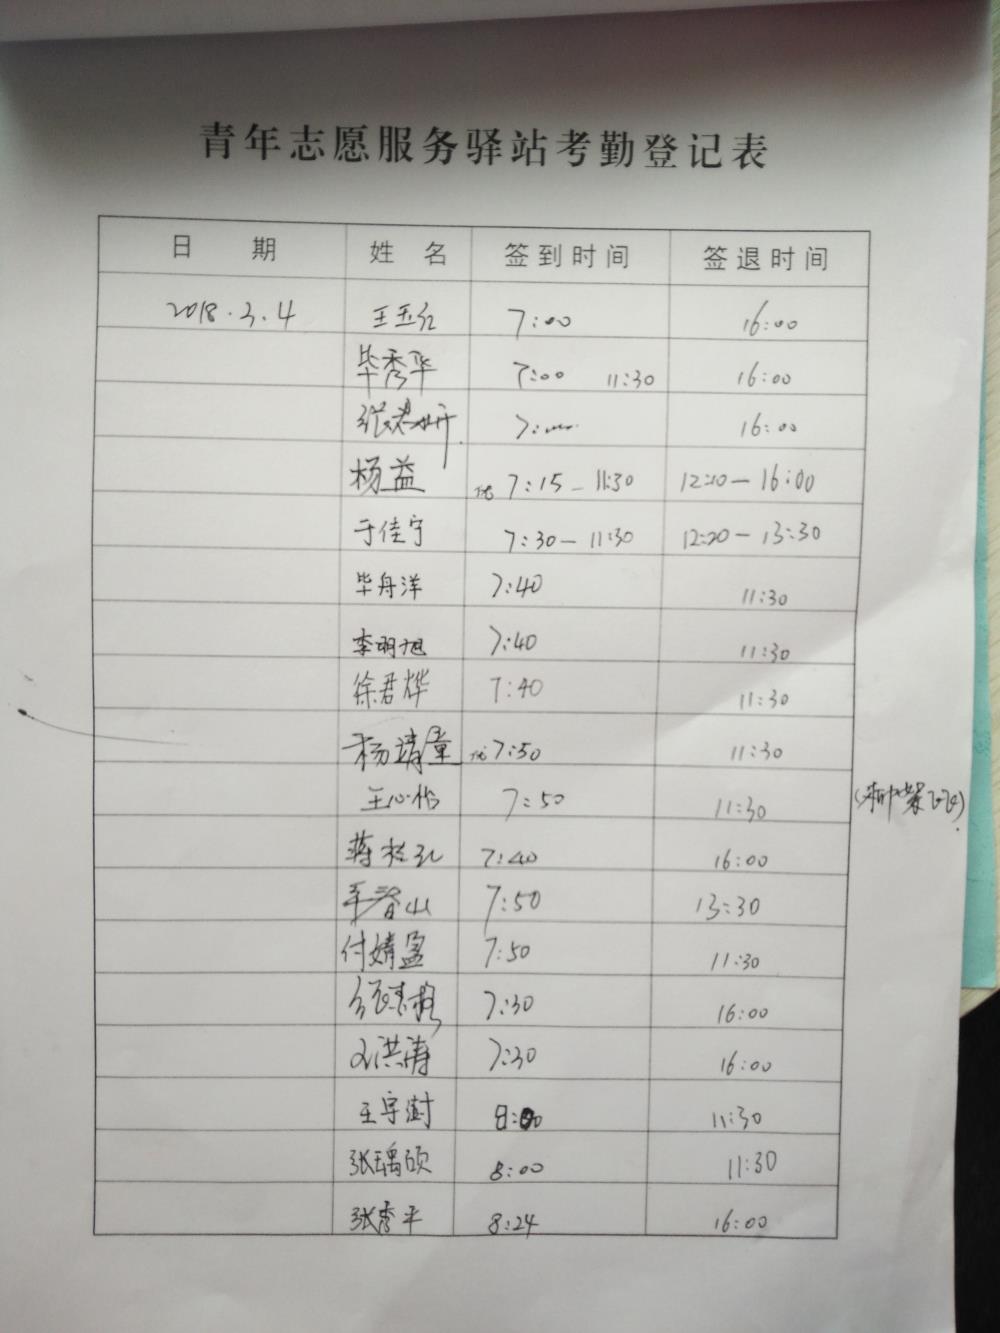 青年志愿服务驿站考勤登记表
日 期 姓 名 签到时间 签退时间
2018.3.4 王玉红 7:00 16:00
毕秀华 7:00 11:30 16:00
张 7: 16:00
杨益 7:15-11:30 12:10-16:00
于佳宁 7:30-11:30 12:20-13:30
毕舟洋 7:40 11:30
李明旭 7:40 11:30
徐君烨 7:40 11:30
杨靖童 7:50 11:30
王心怡 7:50 11:30
蒋 7:40 16:00
山 7:50 13:30
付婧盈 7:50 11:30
7:30 16:00
刘洪涛 7:30 16:00
王宇澍 8:00 11:30
张瑀硕 8:00 11:30
张秀平 8:24 16:00